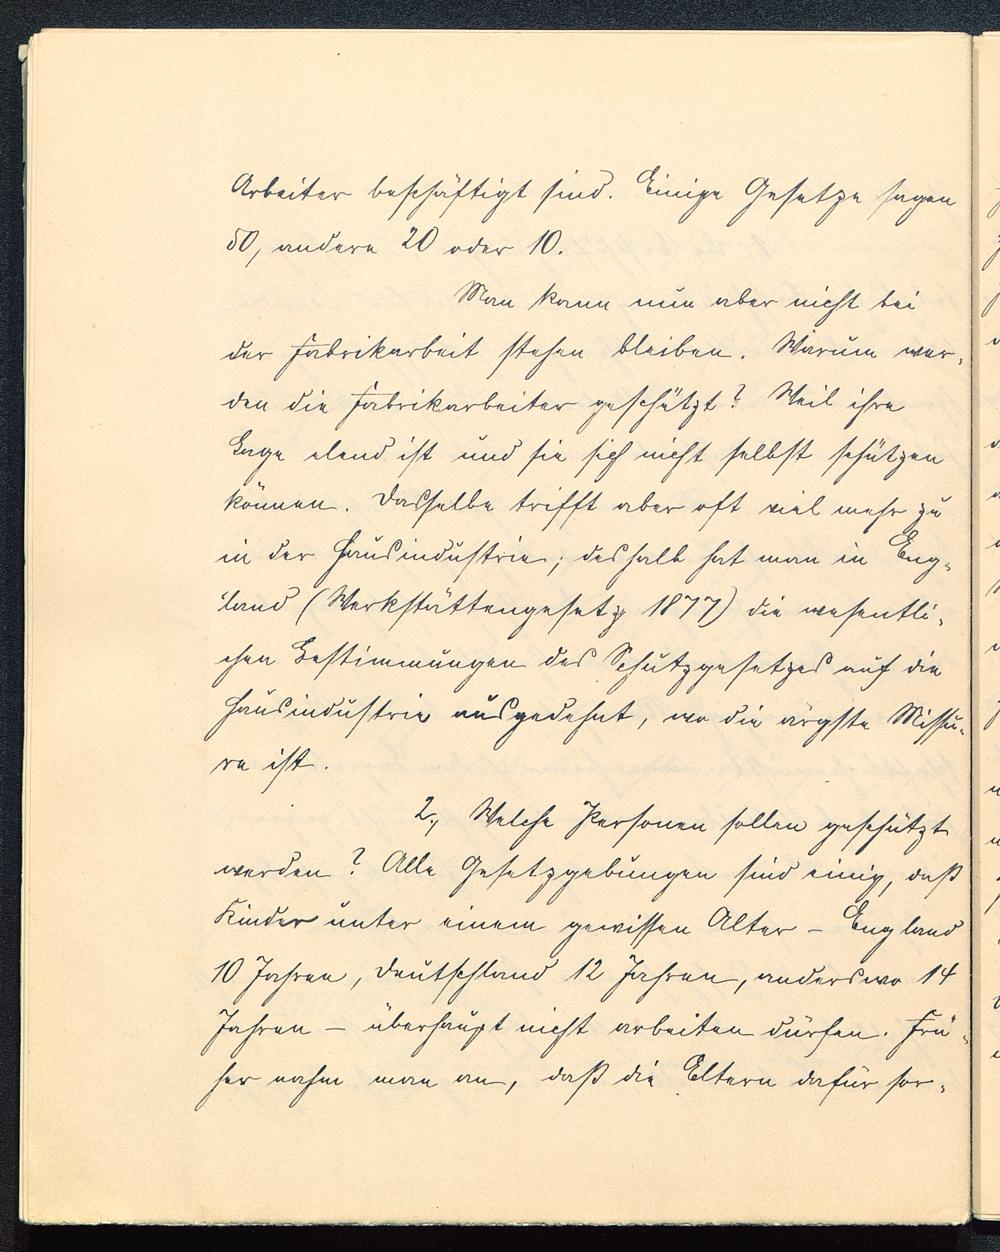 Arbeiter beschäftigt sind. Einige Gesetze sagen
50, andere 20 oder 10.
Man kann nun aber nicht bei
der Fabrikarbeit stehen bleiben. Warum wer-
den die Fabrikarbeiter geschützt? Weil ihre
Lage elend ist und sie sich nicht selbst schützen
können. Dasselbe trifft aber oft viel mehr zu
in der Hausindustrie; deshalb hat man in Eng-
land (Werkstättengesetz 1877) die wesentli-
chen Bestimmungen des Schutzgesetzes auf die
Hausindustrie ausgedehnt, wo die ärgste Misè-
re ist.
2., Welche Personen sollen geschützt
werden? Alle Gesetzgebungen sind einig, daß
Kinder unter einem gewissen Alter – England
10 Jahren, Deutschland 12 Jahren, anderswo 14
Jahren – überhaupt nicht arbeiten dürfen. Frü-
her nahm man an, daß die Eltern dafür sor-